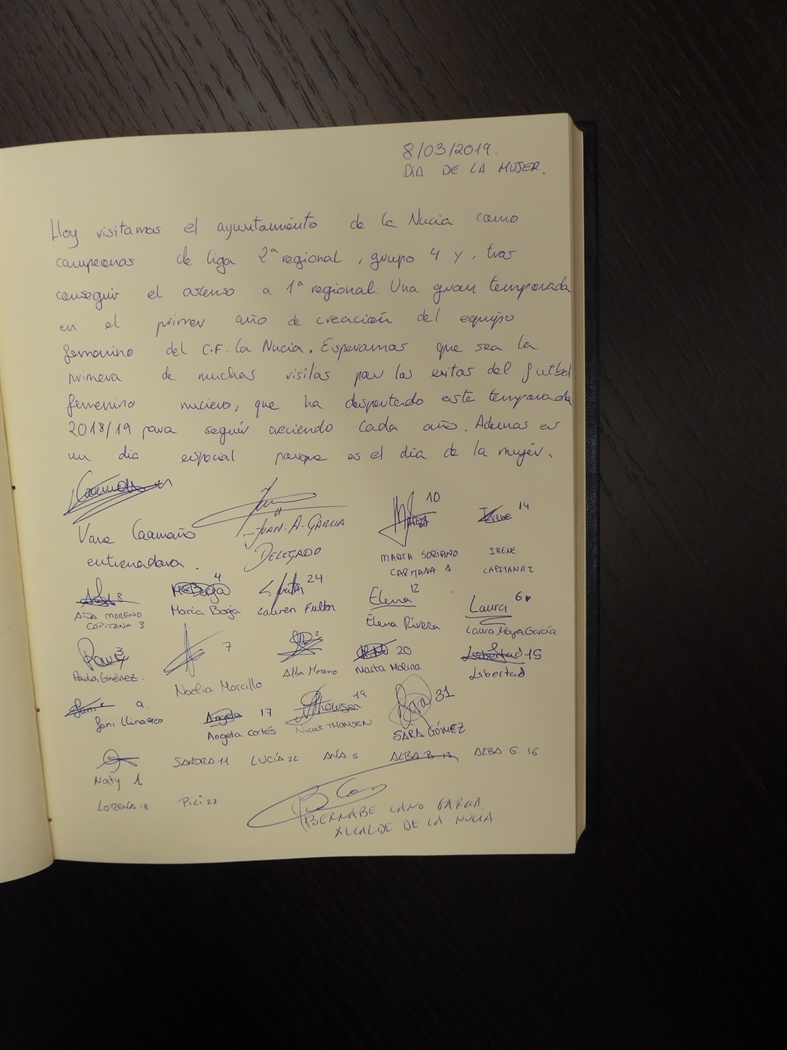 8/03/2019.
DIA DE LA MUJER.
Hoy visitamos el ayuntamiento de la Nucia como
campeonas de liga 2ª regional, grupo 4 y, tras
conseguir el ascenso a 1ª regional. Una gran temporada
en el primer año de creación del equipo
femenino del C.F. La Nucia. Esperamos que sea la
primera de muchas visitas por los exitos del futbol
femenino nuciero, que ha despertado esta temporada
2018/19 para seguir creciendo cada año. Ademas es
un dia especial porque es el dia de la mujer.
Vane Caamaño
entrenadora.
JUAN. A. GARCIA
DELEGADO
10
MARTA SORIANO
CAPITANA 1
Irene 14
IRENE
CAPITANA 2
8
MORENO
CAPITANA 3
4
Maria Borja
24
Lauren Fulton
Elena 12
Elena Rivera
Laura 6
Laura Moya García
3
Paula Giménez.
7
Noelia Morcillo
2
Alba Moreno
20
Marta Molina
Libertad 15
Libertad
9
Jani Llinares
Angela 17
Angela Cortés
Thomsen 19
Nicol THOMSEN
Sara 31
SARA GÓMEZ
Naty 1
SANDRA 11 LUCÍA 22 ANA 5 ALBA B. 13 ALBA G. 16
LORENA 18 PILI 23
BERNABE CANO GARCIA.
ALCALDE DE LA NUCIA